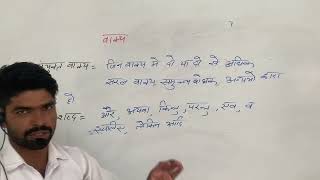 वाक्य
वाक्य = जिन वाक्य में दो या दो से अधिक
सरल वाक्य समुच्चय बोधक अव्ययों द्वारा
हो
और, अथवा, किन्तु, परन्तु, एवं, व
इसलिए, लेकिन आदि